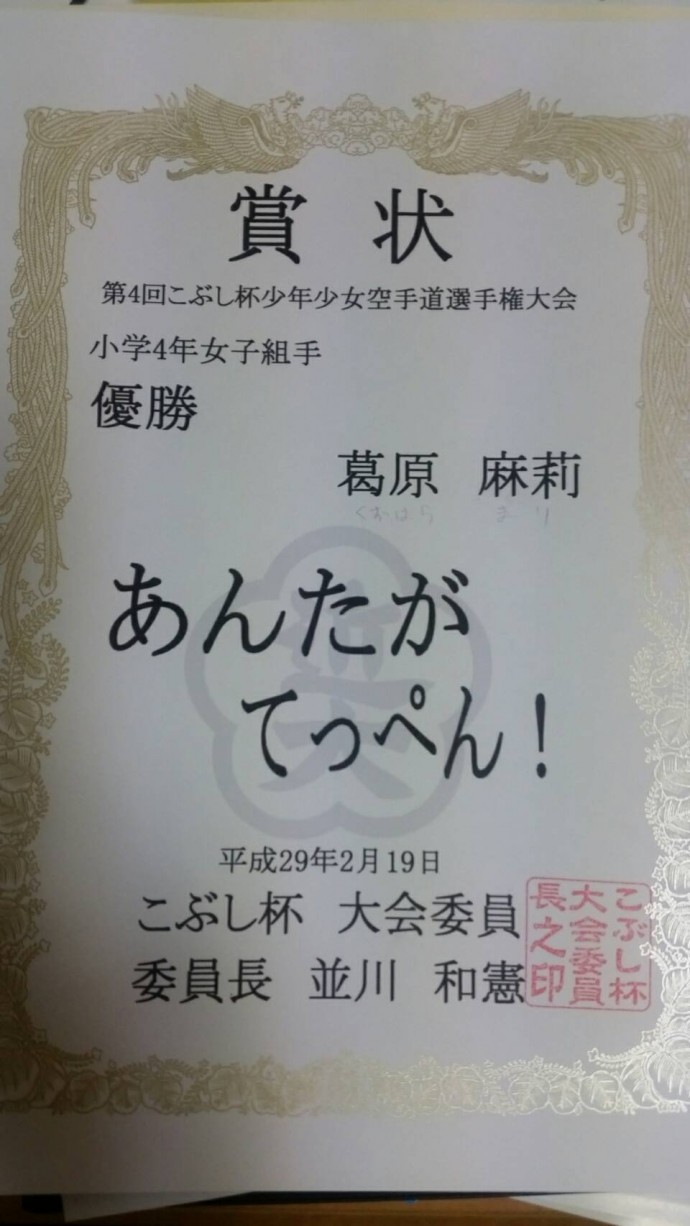 賞状
第4回こぶし杯少年少女空手道選手権大会
小学4年女子組手
優勝
葛原 麻莉
くずはら まり
あんたが
てっぺん!
平成29年2月19日
こぶし杯 大会委員
委員長 並川 和憲
こぶし杯
大会委員
長之印